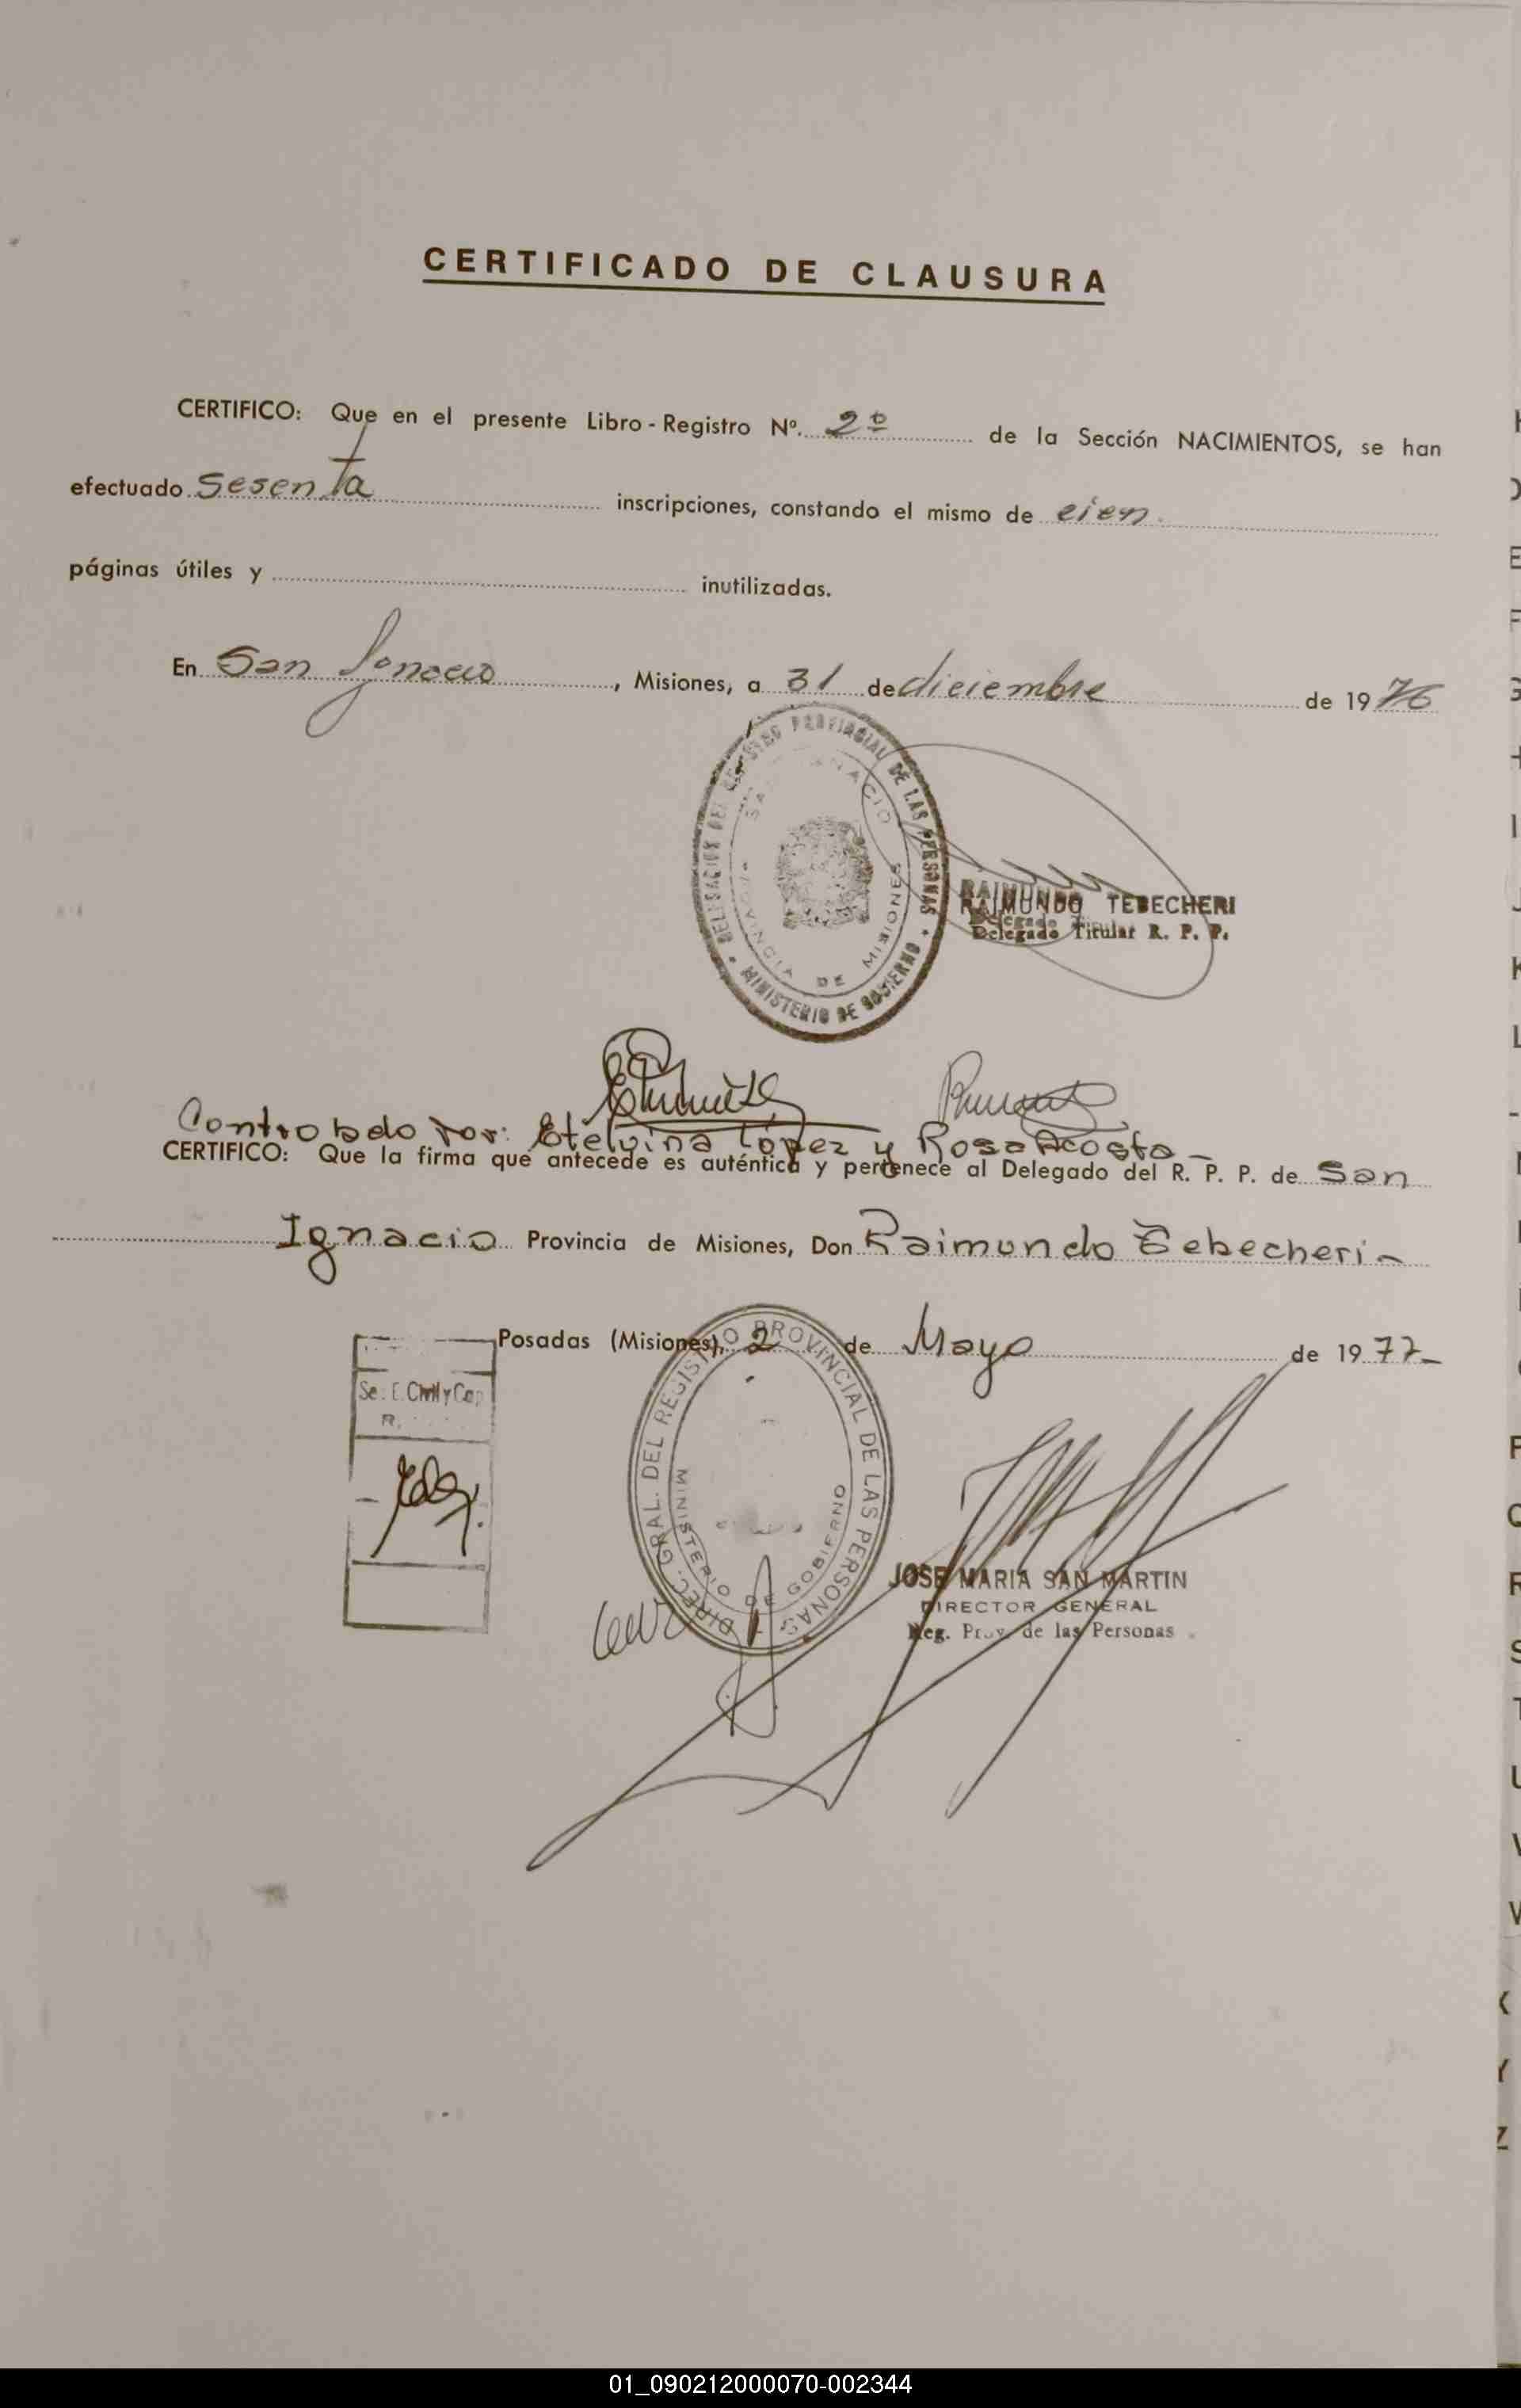 CERTIFICADO DE CLAUSURA
CERTIFICO: Que en el presente Libro - Registro Nº. 2º de la Sección NACIMIENTOS, se han
efectuado Sesenta inscripciones, constando el mismo de cien.
páginas útiles y inutilizadas.
En San Ignacio, Misiones, a 31 de diciembre de 1976
DELEGACION DEL REGISTRO PROVINCIAL DE LAS PERSONAS
MINISTERIO DE GOBIERNO
SAN IGNACIO
PROVINCIA DE MISIONES
RAIMUNDO TEBECHERI
Delegado Titular R. P. P.
Controlado por: Etelvina López y Rosa Acosta
CERTIFICO: Que la firma que antecede es auténtica y pertenece al Delegado del R. P. P. de San
Ignacio Provincia de Misiones, Don Raimundo Tebecheri
Posadas (Misiones), 2 de Mayo de 1977
DIREC. GRAL. DEL REGISTRO PROVINCIAL DE LAS PERSONAS
MINISTERIO DE GOBIERNO
JOSE MARIA SAN MARTIN
DIRECTOR GENERAL
Reg. Prov. de las Personas
K
L
R
S
T
U
V
X
Y
Z
01_090212000070-002344